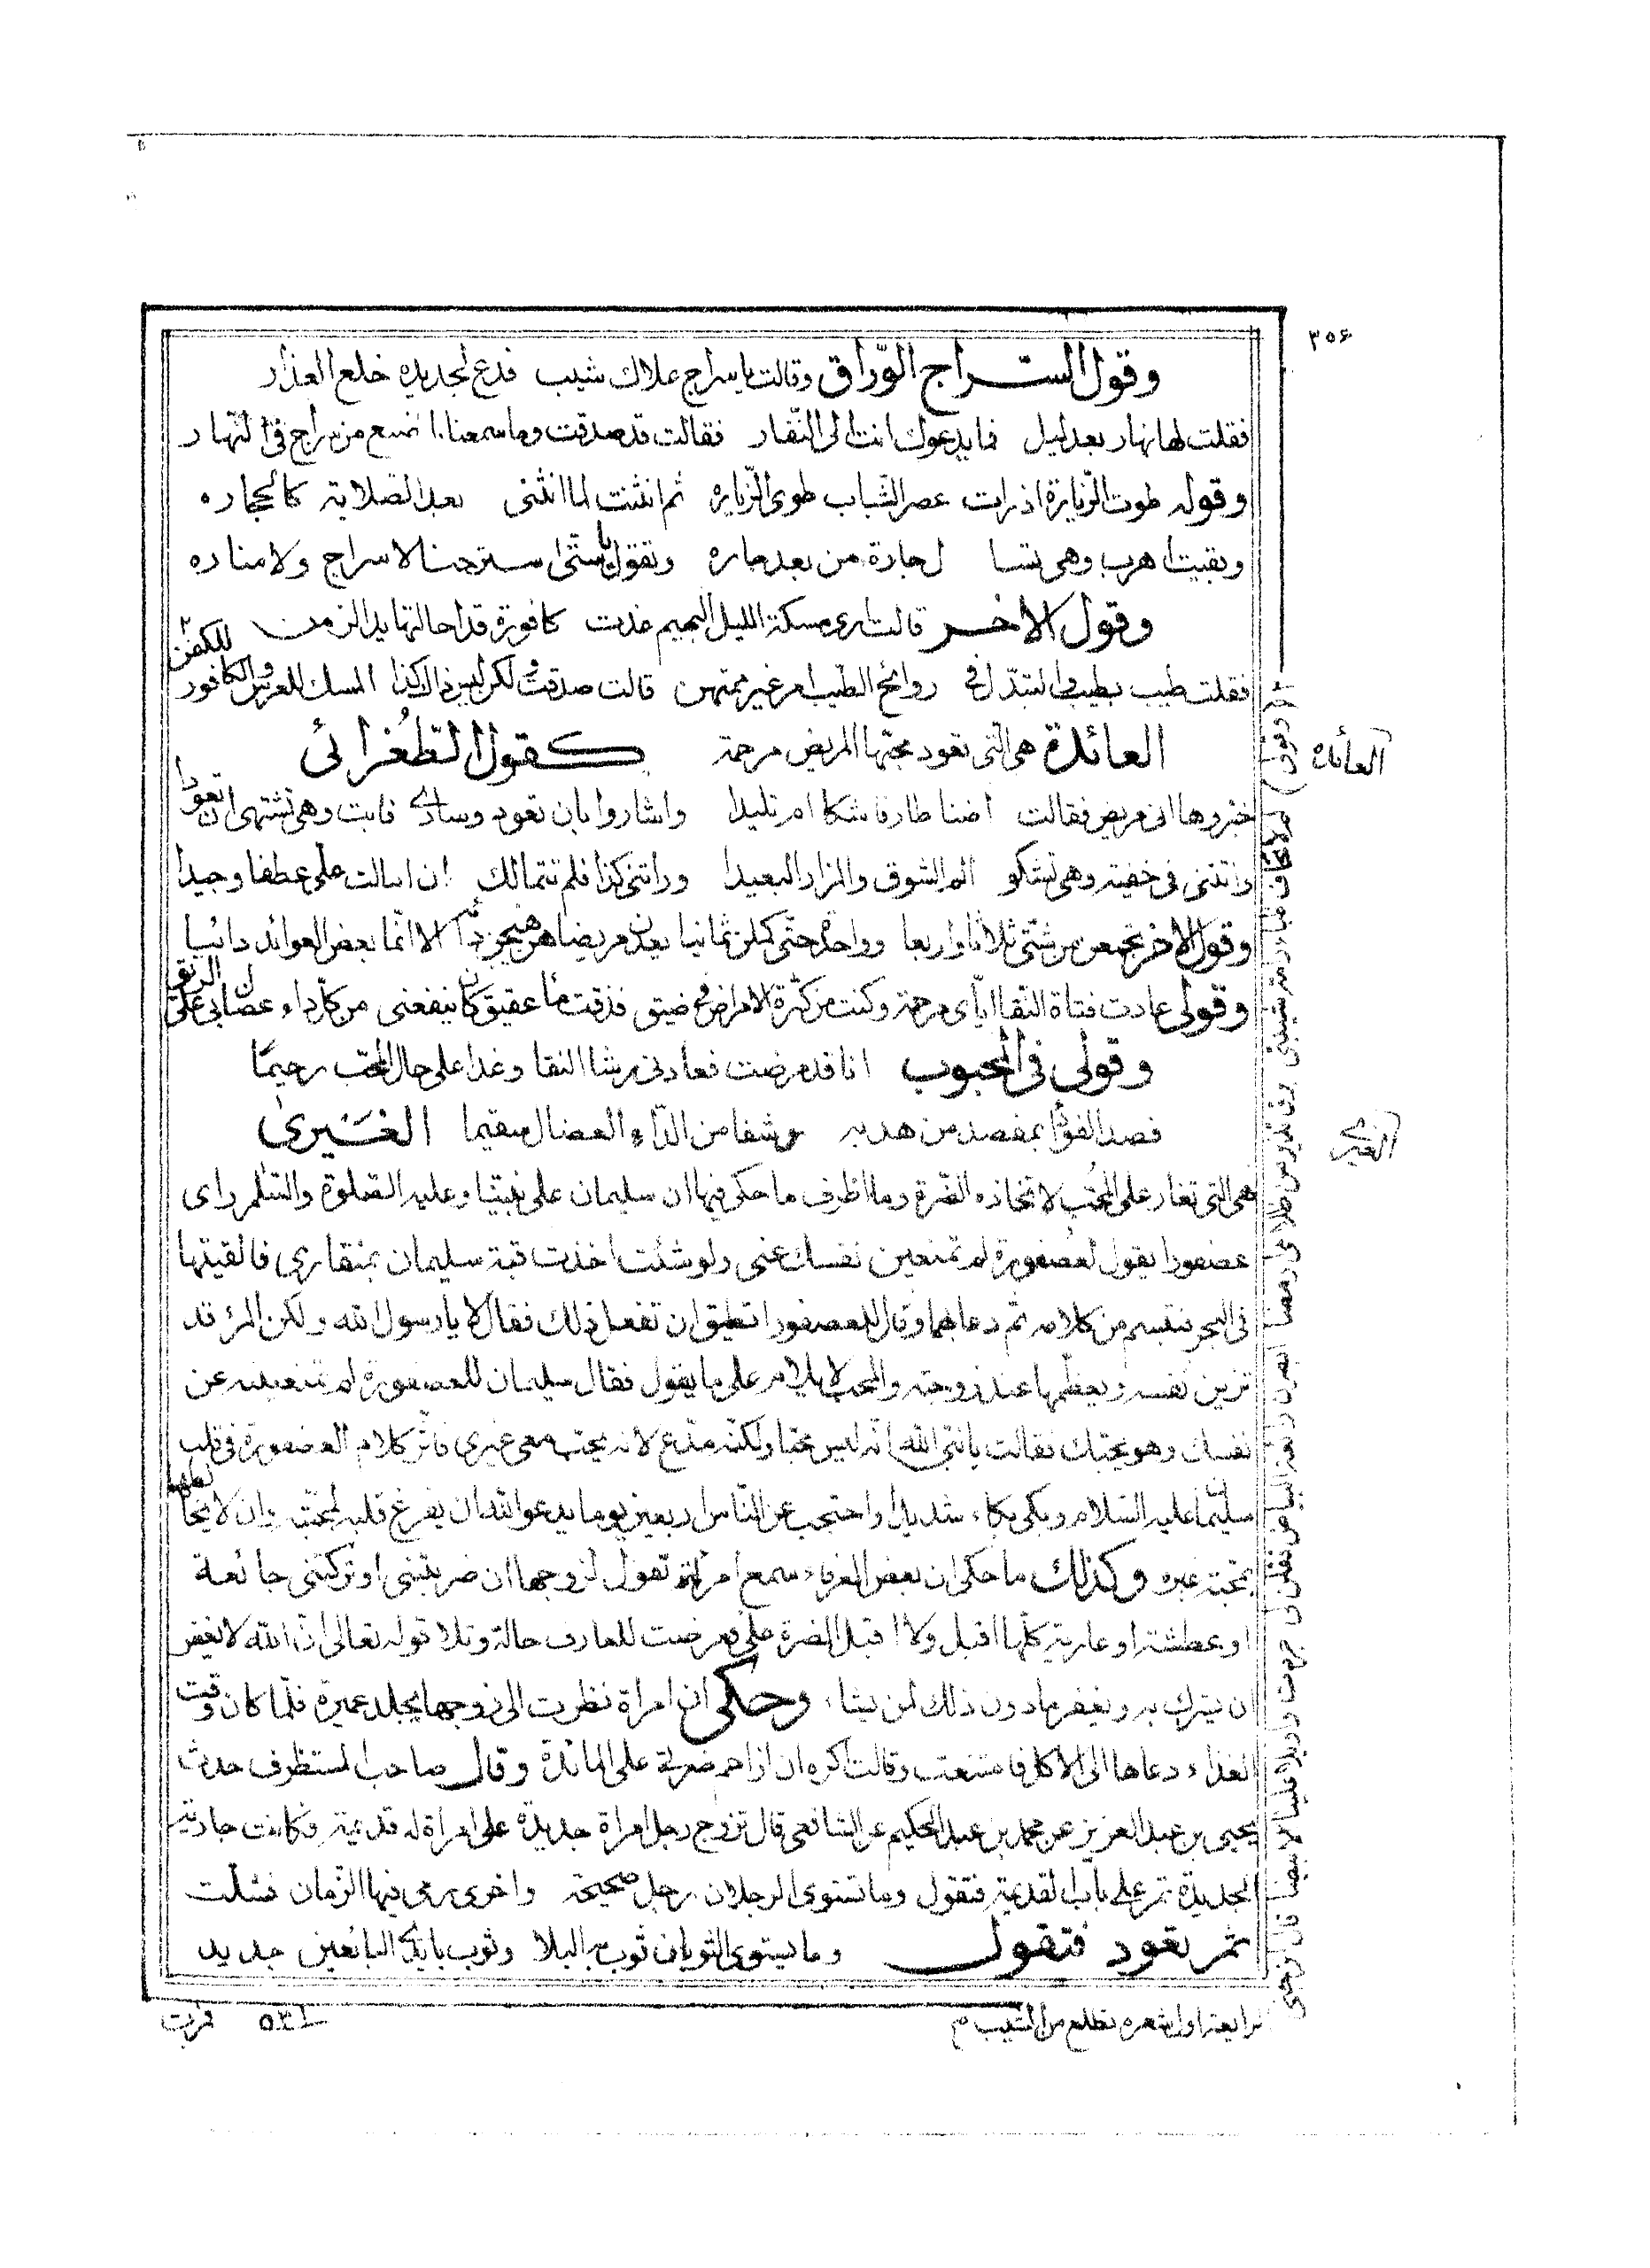 ٣٥٤
وقول السراج الورّاق وقالت يا سراج علاك شيب فدع لجديده خلع العذار
فقلت لها نهار بعد ليل فما يدعوك انت الى النّفار فقالت قد صدقت وما سمعنا باضيع من سراج فى النّهار
وقوله طوت الزّيارة اذ رات عصر الشّباب طوى الزّياره ثم انثنت لما انثنى بعد الصّلابة كالحجاره
وبقيت اهرب وهى تسا ل جارة من بعد جاره وتقول يا ستّى استرحنا لا سراج ولا مناره
وقول الاخر قالت ارى مسكة الليل البهيم غدت كافورة قد احالتها يد الزمن
فقلت طيب بطيب والتبدّل فى روائح الطّيب امر غير ممتهن قالت صدقت ولكن ليس ذاك كذا المسك للعرس والكافور للكفن
العائدة
العائدة هى التى تعود محبّها المريض مرحمة كقول الطُغرائى
خبّروها انى مريض فقالت اضنا طارفا شكا ام تليدا واشاروا بان تعود وسادى فابت وهى تشتهى ان تعودا
واتتنى فى خفية وهى تشكو الم الشوق والمزار البعيدا وراتنى كذا فلم تتمالك ان امالت على عطفا وجيدا
وقول الاخر تجمعن من شتى ثلاثا واربعا وواحدة حتّى كملن ثمانيا يعدن مريضا هن هيجن داءه الا انّما بعض العوائد دائيا
وقولى عادت فتاة النقا اياى مرحمة وكنت من كثرة الامراض فى ضيق فذقت ماء عقيق كان ينفعنى من كل داء عضال بى على الريق
وقولى فى المحبوب انا قد مرضت فعادنى رشا النقا وغدا على حال المحب رحيمًا
فصد الفؤاد بمفصد من هدبه وشفا من الدّاء العضال سقيما الغَيْرىٰ
الغيرى
هى التى تغار على المحُب لاتخاذه الضّرة وما اظرف ما حكى فيها ان سليمان على نبيّنا وعليه الصّلوة والسّلم راى
عصفورا يقول لعصفورة لم تمنعين نفسك عنى ولو شئت اخذت قبة سليمان بمنقارى فالقيتها
فى البحر فتبسم من كلامه ثم دعا بهما وقال للعصفور اتطيق ان تفعل ذلك فقال لا يا رسول الله ولكن المرؤ قد
تزين نفسه ويعظّمها عند زوجته والمحب لا يلام على ما يقول فقال سليمان للعصفورة لم تمنعينه عن
نفسك وهو يحبّك فقالت يا نبىّ الله انّه ليس محبّا ولكنّه مدّع لانه يحب معى غيرى فاثّر كلام العصفورة فى قلب
سليمان عليه السّلام وبكى بكاء شديدا واحتجب عن النّاس اربعين يوما يدعو الله ان يفرغ قلبه لمحبّته وان لا يخالطها
بمحبّة غيره وكذلك ما حكى ان بعض العرفاء سمع امرأة تقول لزوجها ان ضربتنى او تركتنى جائعة
او عطشة او عارية كلّها اقبل ولا اقبل الضرة علىّ فعرضت للعارف حالة وتلا قوله تعالى انّ الله لا يغفر
ان يشرك به ويغفر ما دون ذلك لمن يشاء وحكى ان امراة نظرت الى زوجها يجلد عميرة فلما كان وقت
الغذاء دعاها الى الاكل فامتنعت وقالت اكره ان ازاحم ضرة على المائدة وقال صاحب المستظرف حدث
يحيى بن عبد العزيز عن محمد بن عبد الحكيم عن الشافعى قال تزوج رجل امراة جديدة على امراة له قديمة فكانت جارية
الجديدة تمر على باب القديمة فتقول وما تستوى الرجلان رجل صحيحة واخرى رمى فيها الزّمان فشلّت
ثم تعود فتقول وما يستوى الثوبان ثوب به البلا وثوب بايدى البائعين جديد
الرابعة اول شعرة تطلع من الشيب
فمرت